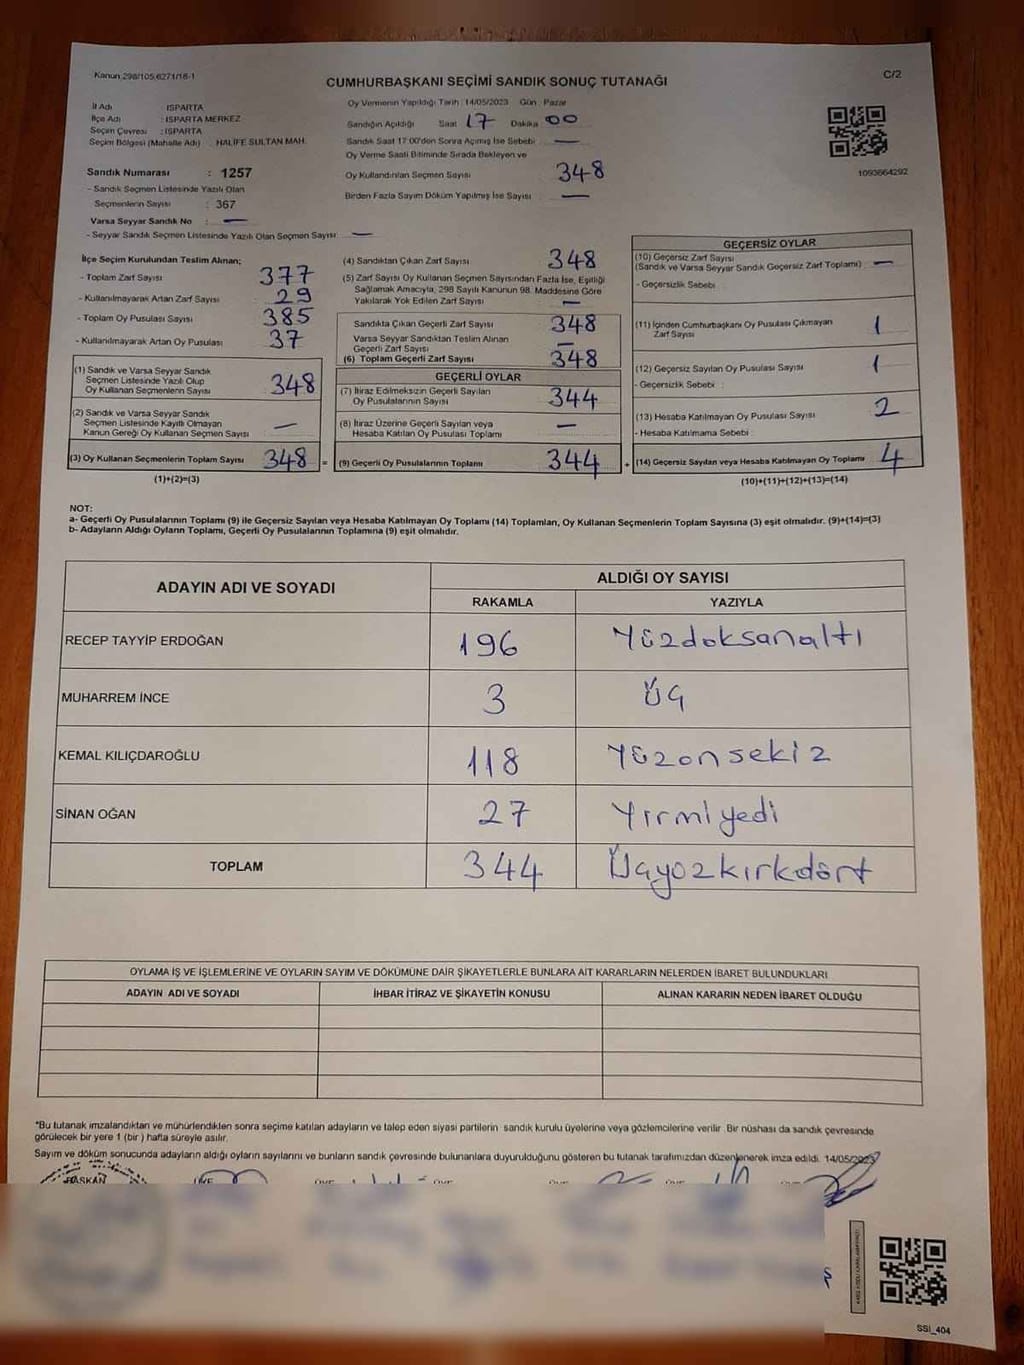 Kanun 298/105,6271/18-1
CUMHURBAŞKANI SEÇİMİ SANDIK SONUÇ TUTANAĞI
C/2
İl Adı ISPARTA
İlçe Adı : ISPARTA MERKEZ
Seçim Çevresi : ISPARTA
Seçim Bölgesi (Mahalle Adı) HALİFE SULTAN MAH.
Sandık Numarası : 1257
- Sandık Seçmen Listesinde Yazılı Olan
Seçmenlerin Sayısı : 367
Varsa Seyyar Sandık No : —
- Seyyar Sandık Seçmen Listesinde Yazılı Olan Seçmen Sayısı —
Oy Vermenin Yapıldığı Tarih :14/05/2023 Gün : Pazar
Sandığın Açıldığı Saat 17 Dakika 00
Sandık Saat 17:00'den Sonra Açılmış İse Sebebi —
Oy Verme Saati Bitiminde Sırada Bekleyen ve
Oy Kullandırılan Seçmen Sayısı 348
Birden Fazla Sayım Döküm Yapılmış İse Sayısı —
1093664292
İlçe Seçim Kurulundan Teslim Alınan;
- Toplam Zarf Sayısı 377
- Kullanılmayarak Artan Zarf Sayısı 29
- Toplam Oy Pusulası Sayısı 385
- Kullanılmayarak Artan Oy Pusulası 37
(1) Sandık ve Varsa Seyyar Sandık
Seçmen Listesinde Yazılı Olup
Oy Kullanan Seçmenlerin Sayısı 348
(2) Sandık ve Varsa Seyyar Sandık
Seçmen Listesinde Kayıtlı Olmayan
Kanun Gereği Oy Kullanan Seçmen Sayısı —
(3) Oy Kullanan Seçmenlerin Toplam Sayısı 348 =
(1)+(2)=(3)
(4) Sandıktan Çıkan Zarf Sayısı 348
(5) Zarf Sayısı Oy Kullanan Seçmen Sayısından Fazla İse, Eşitliği
Sağlamak Amacıyla, 298 Sayılı Kanunun 98. Maddesine Göre
Yakılarak Yok Edilen Zarf Sayısı —
Sandıkta Çıkan Geçerli Zarf Sayısı 348
Varsa Seyyar Sandıktan Teslim Alınan
Geçerli Zarf Sayısı —
(6) Toplam Geçerli Zarf Sayısı 348
GEÇERLİ OYLAR
(7) İtiraz Edilmeksizin Geçerli Sayılan
Oy Pusulalarının Sayısı 344
(8) İtiraz Üzerine Geçerli Sayılan veya
Hesaba Katılan Oy Pusulası Toplamı —
(9) Geçerli Oy Pusulalarının Toplamı 344 +
GEÇERSİZ OYLAR
(10) Geçersiz Zarf Sayısı
(Sandık ve Varsa Seyyar Sandık Geçersiz Zarf Toplamı) —
- Geçersizlik Sebebi
(11) İçinden Cumhurbaşkanı Oy Pusulası Çıkmayan
Zarf Sayısı 1
(12) Geçersiz Sayılan Oy Pusulası Sayısı 1
- Geçersizlik Sebebi :
(13) Hesaba Katılmayan Oy Pusulası Sayısı 2
- Hesaba Katılmama Sebebi :
(14) Geçersiz Sayılan veya Hesaba Katılmayan Oy Toplamı 4
(10)+(11)+(12)+(13)=(14)
NOT:
a- Geçerli Oy Pusulalarının Toplamı (9) ile Geçersiz Sayılan veya Hesaba Katılmayan Oy Toplamı (14) Toplamları, Oy Kullanan Seçmenlerin Toplam Sayısına (3) eşit olmalıdır. (9)+(14)=(3)
b- Adayların Aldığı Oyların Toplamı, Geçerli Oy Pusulalarının Toplamına (9) eşit olmalıdır.
ADAYIN ADI VE SOYADI ALDIĞI OY SAYISI
RAKAMLA YAZIYLA
RECEP TAYYİP ERDOĞAN 196 Yüzdoksanaltı
MUHARREM İNCE 3 Üç
KEMAL KILIÇDAROĞLU 118 Yüzonsekiz
SİNAN OĞAN 27 Yirmiyedi
TOPLAM 344 Üçyüzkırkdört
OYLAMA İŞ VE İŞLEMLERİNE VE OYLARIN SAYIM VE DÖKÜMÜNE DAİR ŞİKAYETLERLE BUNLARA AİT KARARLARIN NELERDEN İBARET BULUNDUKLARI
ADAYIN ADI VE SOYADI İHBAR İTİRAZ VE ŞİKAYETİN KONUSU ALINAN KARARIN NEDEN İBARET OLDUĞU
*Bu tutanak imzalandıktan ve mühürlendikten sonra seçime katılan adayların ve talep eden siyasi partilerin sandık kurulu üyelerine veya gözlemcilerine verilir. Bir nüshası da sandık çevresinde
görülecek bir yere 1 (bir) hafta süreyle asılır.
Sayım ve döküm sonucunda adayların aldığı oyların sayılarını ve bunların sandık çevresinde bulunanlara duyurulduğunu gösteren bu tutanak tarafımızdan düzenlenerek imza edildi. 14/05/2023
BAŞKAN ÜYE
SSİ_404